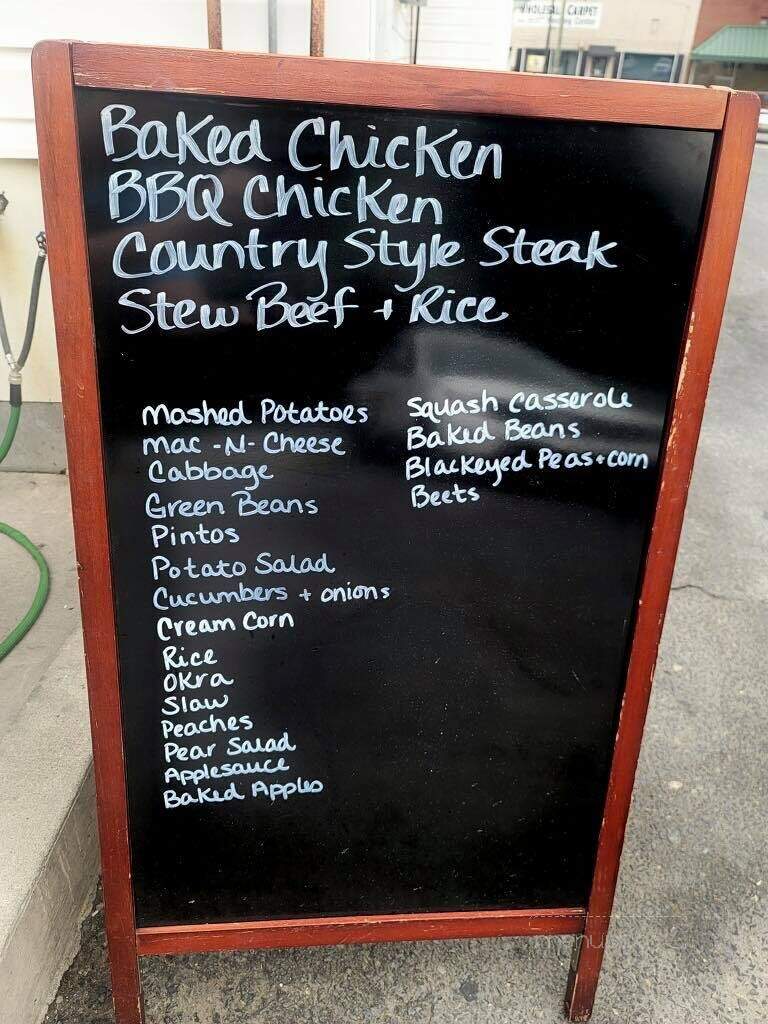 WHOLESALE CARPET
Baked Chicken
BBQ Chicken
Country Style Steak
Stew Beef + Rice
Mashed Potatoes
Mac-N-Cheese
Cabbage
Green Beans
Pintos
Potato Salad
Cucumbers + onions
Cream Corn
Rice
Okra
Slaw
Peaches
Pear Salad
Applesauce
Baked Apples
Squash Casserole
Baked Beans
Blackeyed Peas+corn
Beets